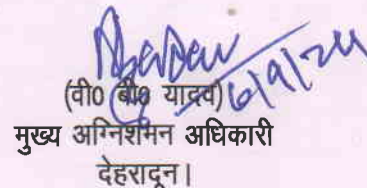 6/9/24
(वी0 बी0 यादव)
मुख्य अग्निशमन अधिकारी
देहरादून।